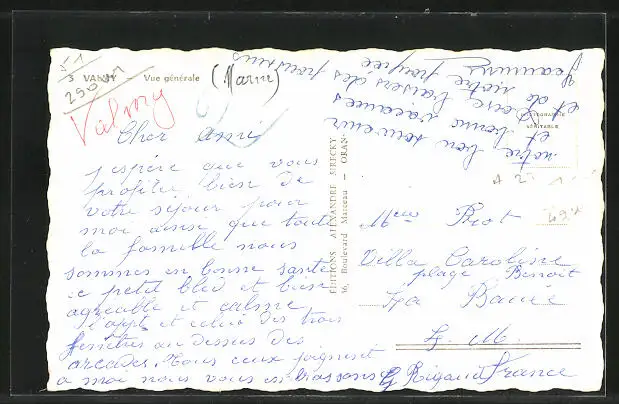 3 VALMY — Vue générale
(Marne)
Valmy
Cher ami
j'espère que vous
profitez bien de
votre séjour pour
moi ainsi que toute
la famille nous
sommes en bonne santé
ce petit bled et bien
agréable et calme
l'appt et celui des trois
fenêtres au dessus des
arcades. Tous ceux joignent
a moi nous vous embrassons
G Rigaud
notre bon souvenir
et bonne vacances
et de gros baisers des
notre poupée
ÉDITIONS ALEXANDRE SIRECKY
16, Boulevard Marceau — ORAN
VÉRITABLE
Mme Riot
Villa Caroline
plage Benoit
La Baule
L. M.
France